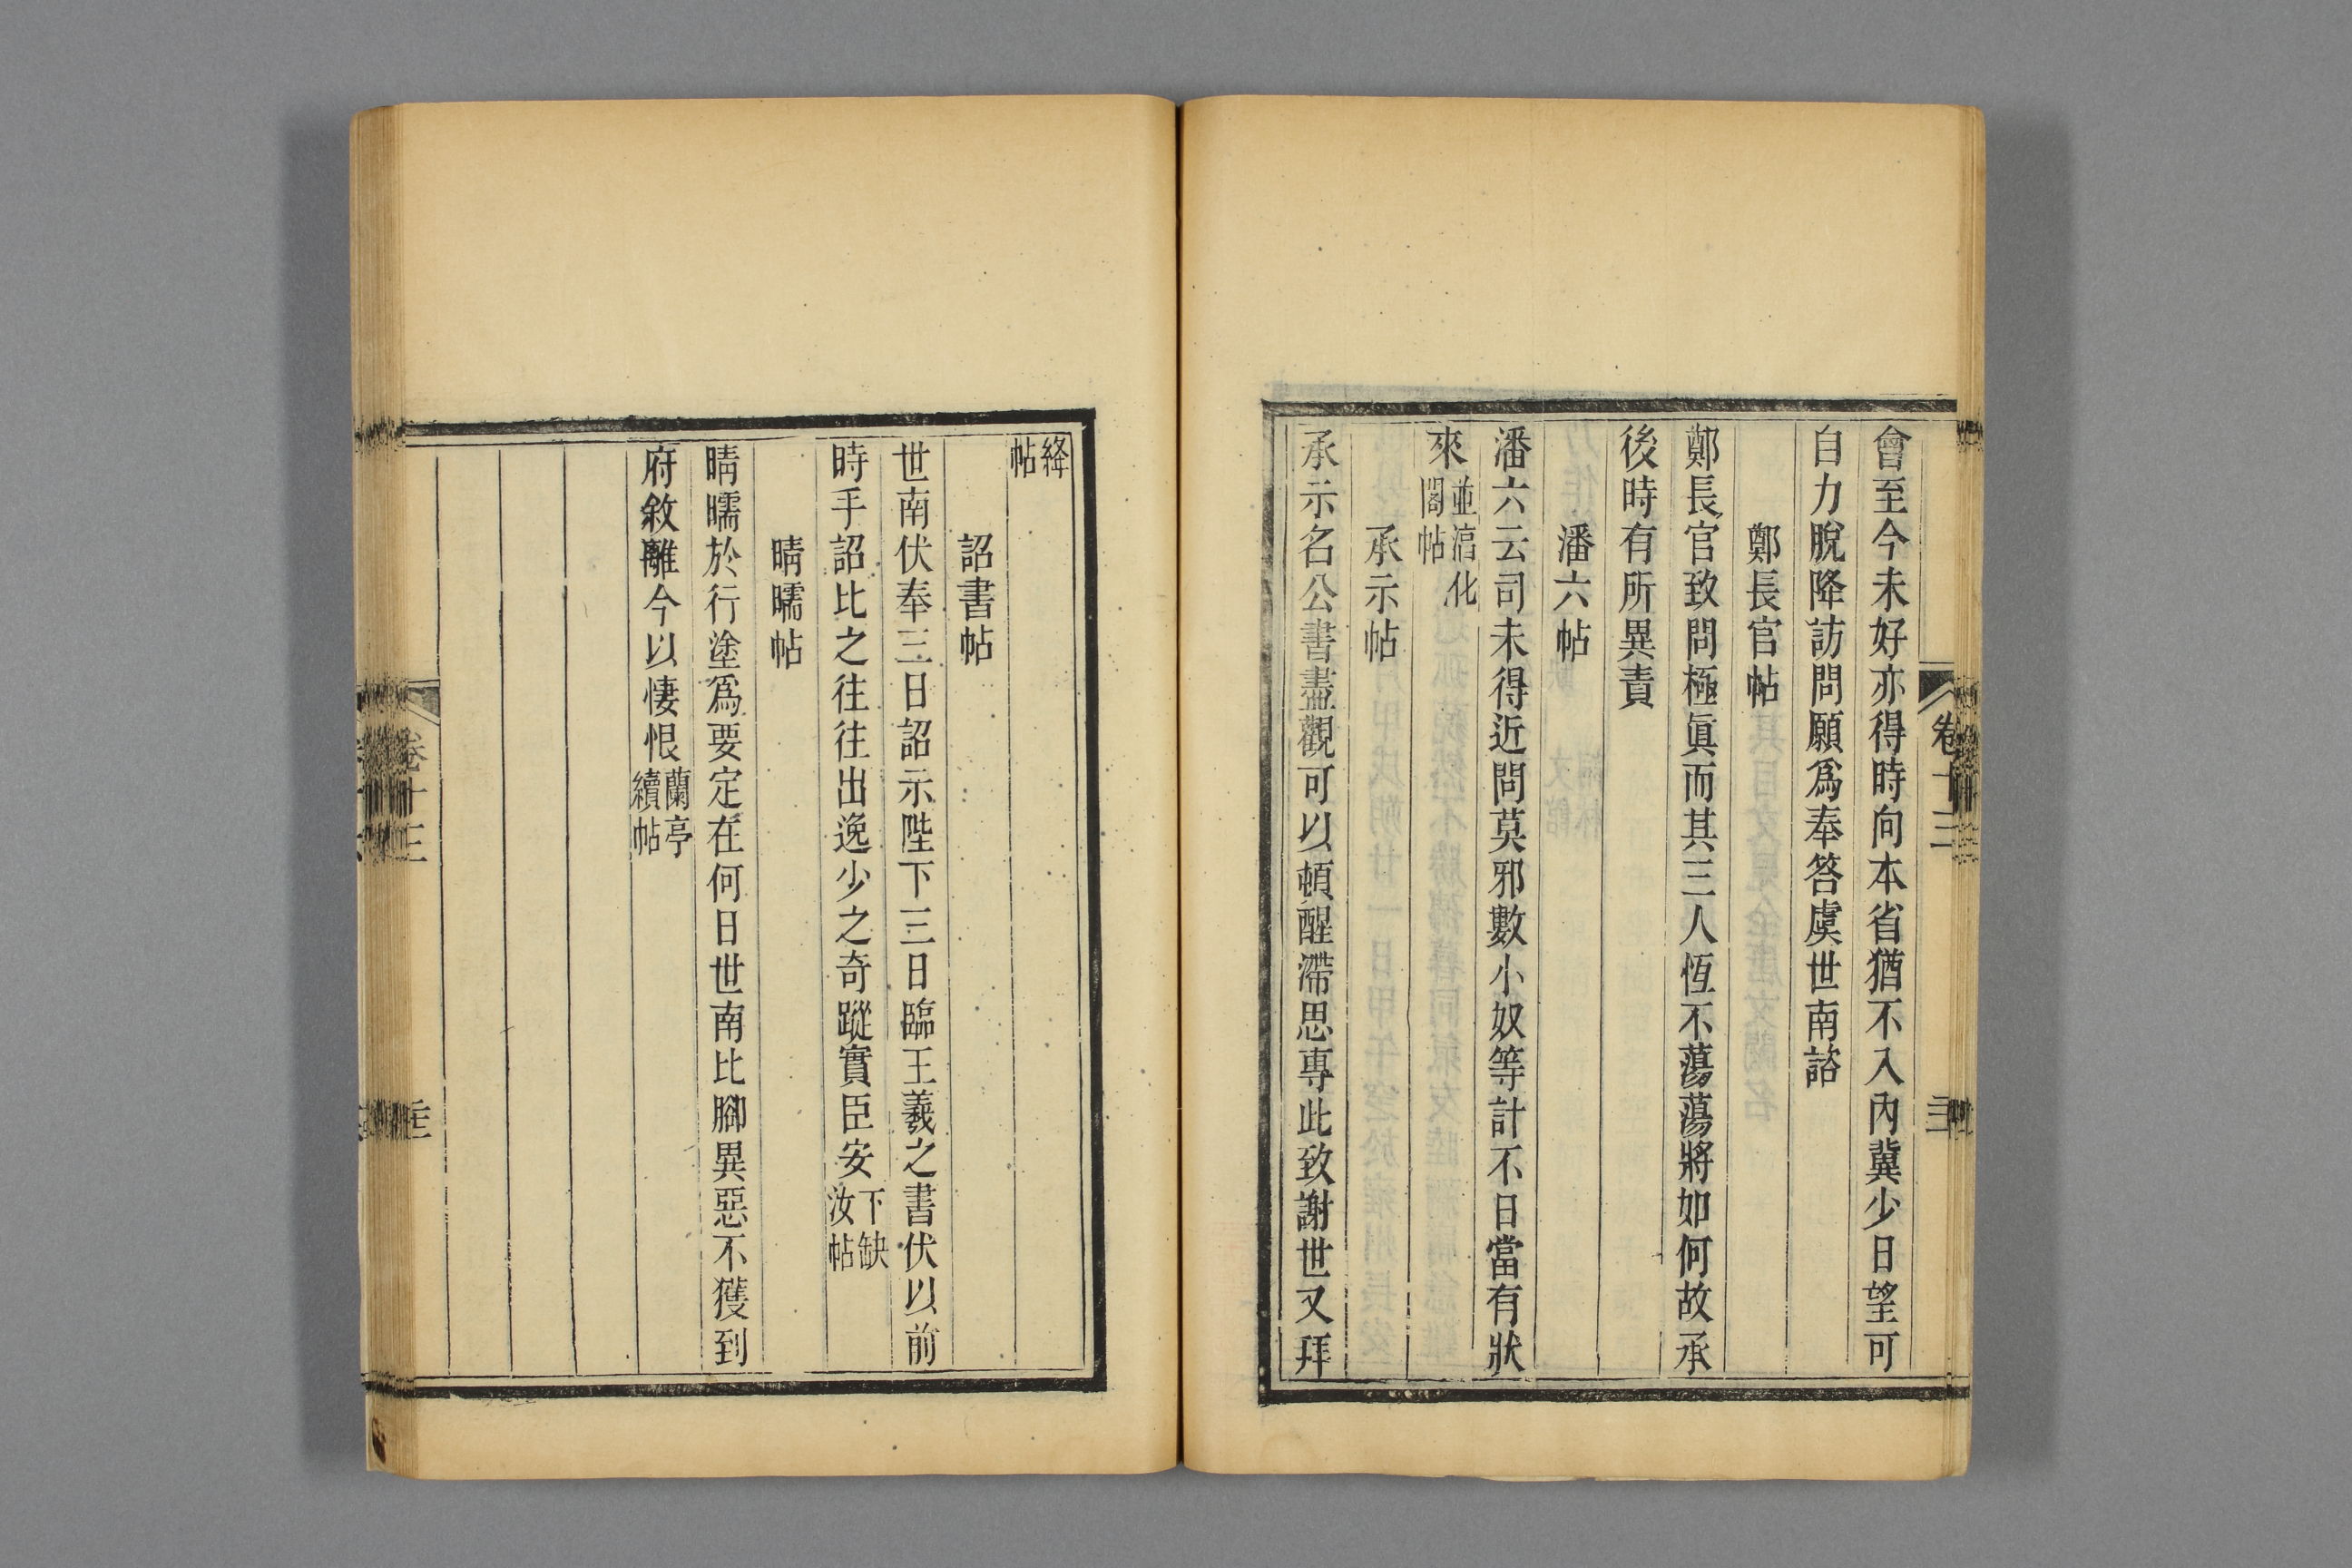 會至今未好亦得時向本省猶不入內冀少日望可
自力脫降訪問願爲奉答虞世南諮
鄭長官帖
鄭長官致問極眞而其三人恆不蕩蕩將如何故承
後時有所異責
潘六帖
潘六云司未得近問莫邪數小奴等計不日當有狀
來並淳化
閣帖
承示帖
承示名公書盡觀可以頓醒滯思專此致謝世又拜
卷十三
絳
帖
詔書帖
世南伏奉三日詔示陛下三日臨王羲之書伏以前
時手詔比之往往出逸少之奇蹤實臣安下缺
汝帖
晴曘帖
晴曘於行塗爲要定在何日世南比腳異惡不獲到
府敘離今以悽恨蘭亭
續帖
卷十三